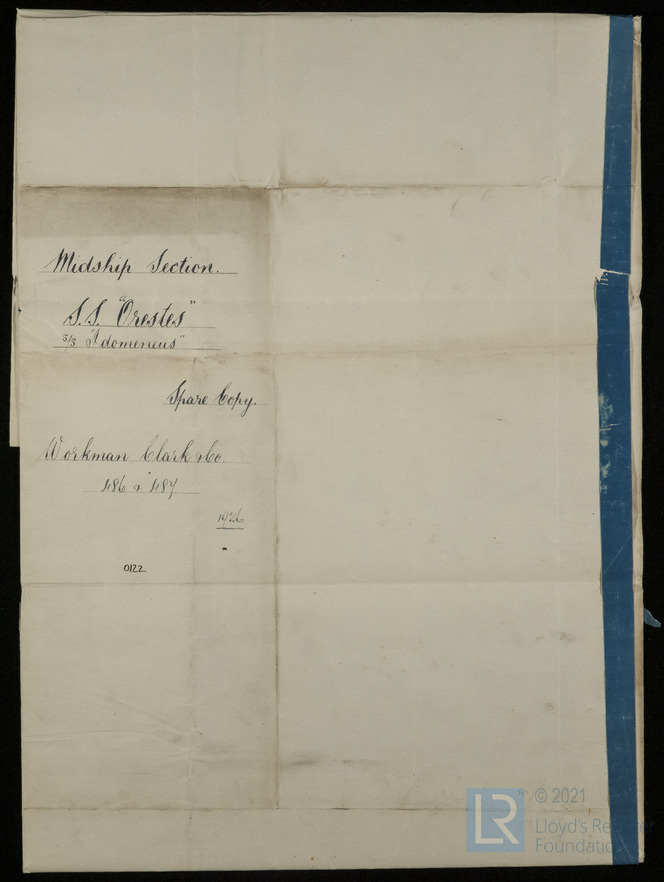 Midship Section.
S.S. "Orestes"
S/S "Idomeneus"
Spare Copy.
Workman Clark & Co
486 & 487
1926
0122
LR © 2021
Lloyd's Register
Foundation